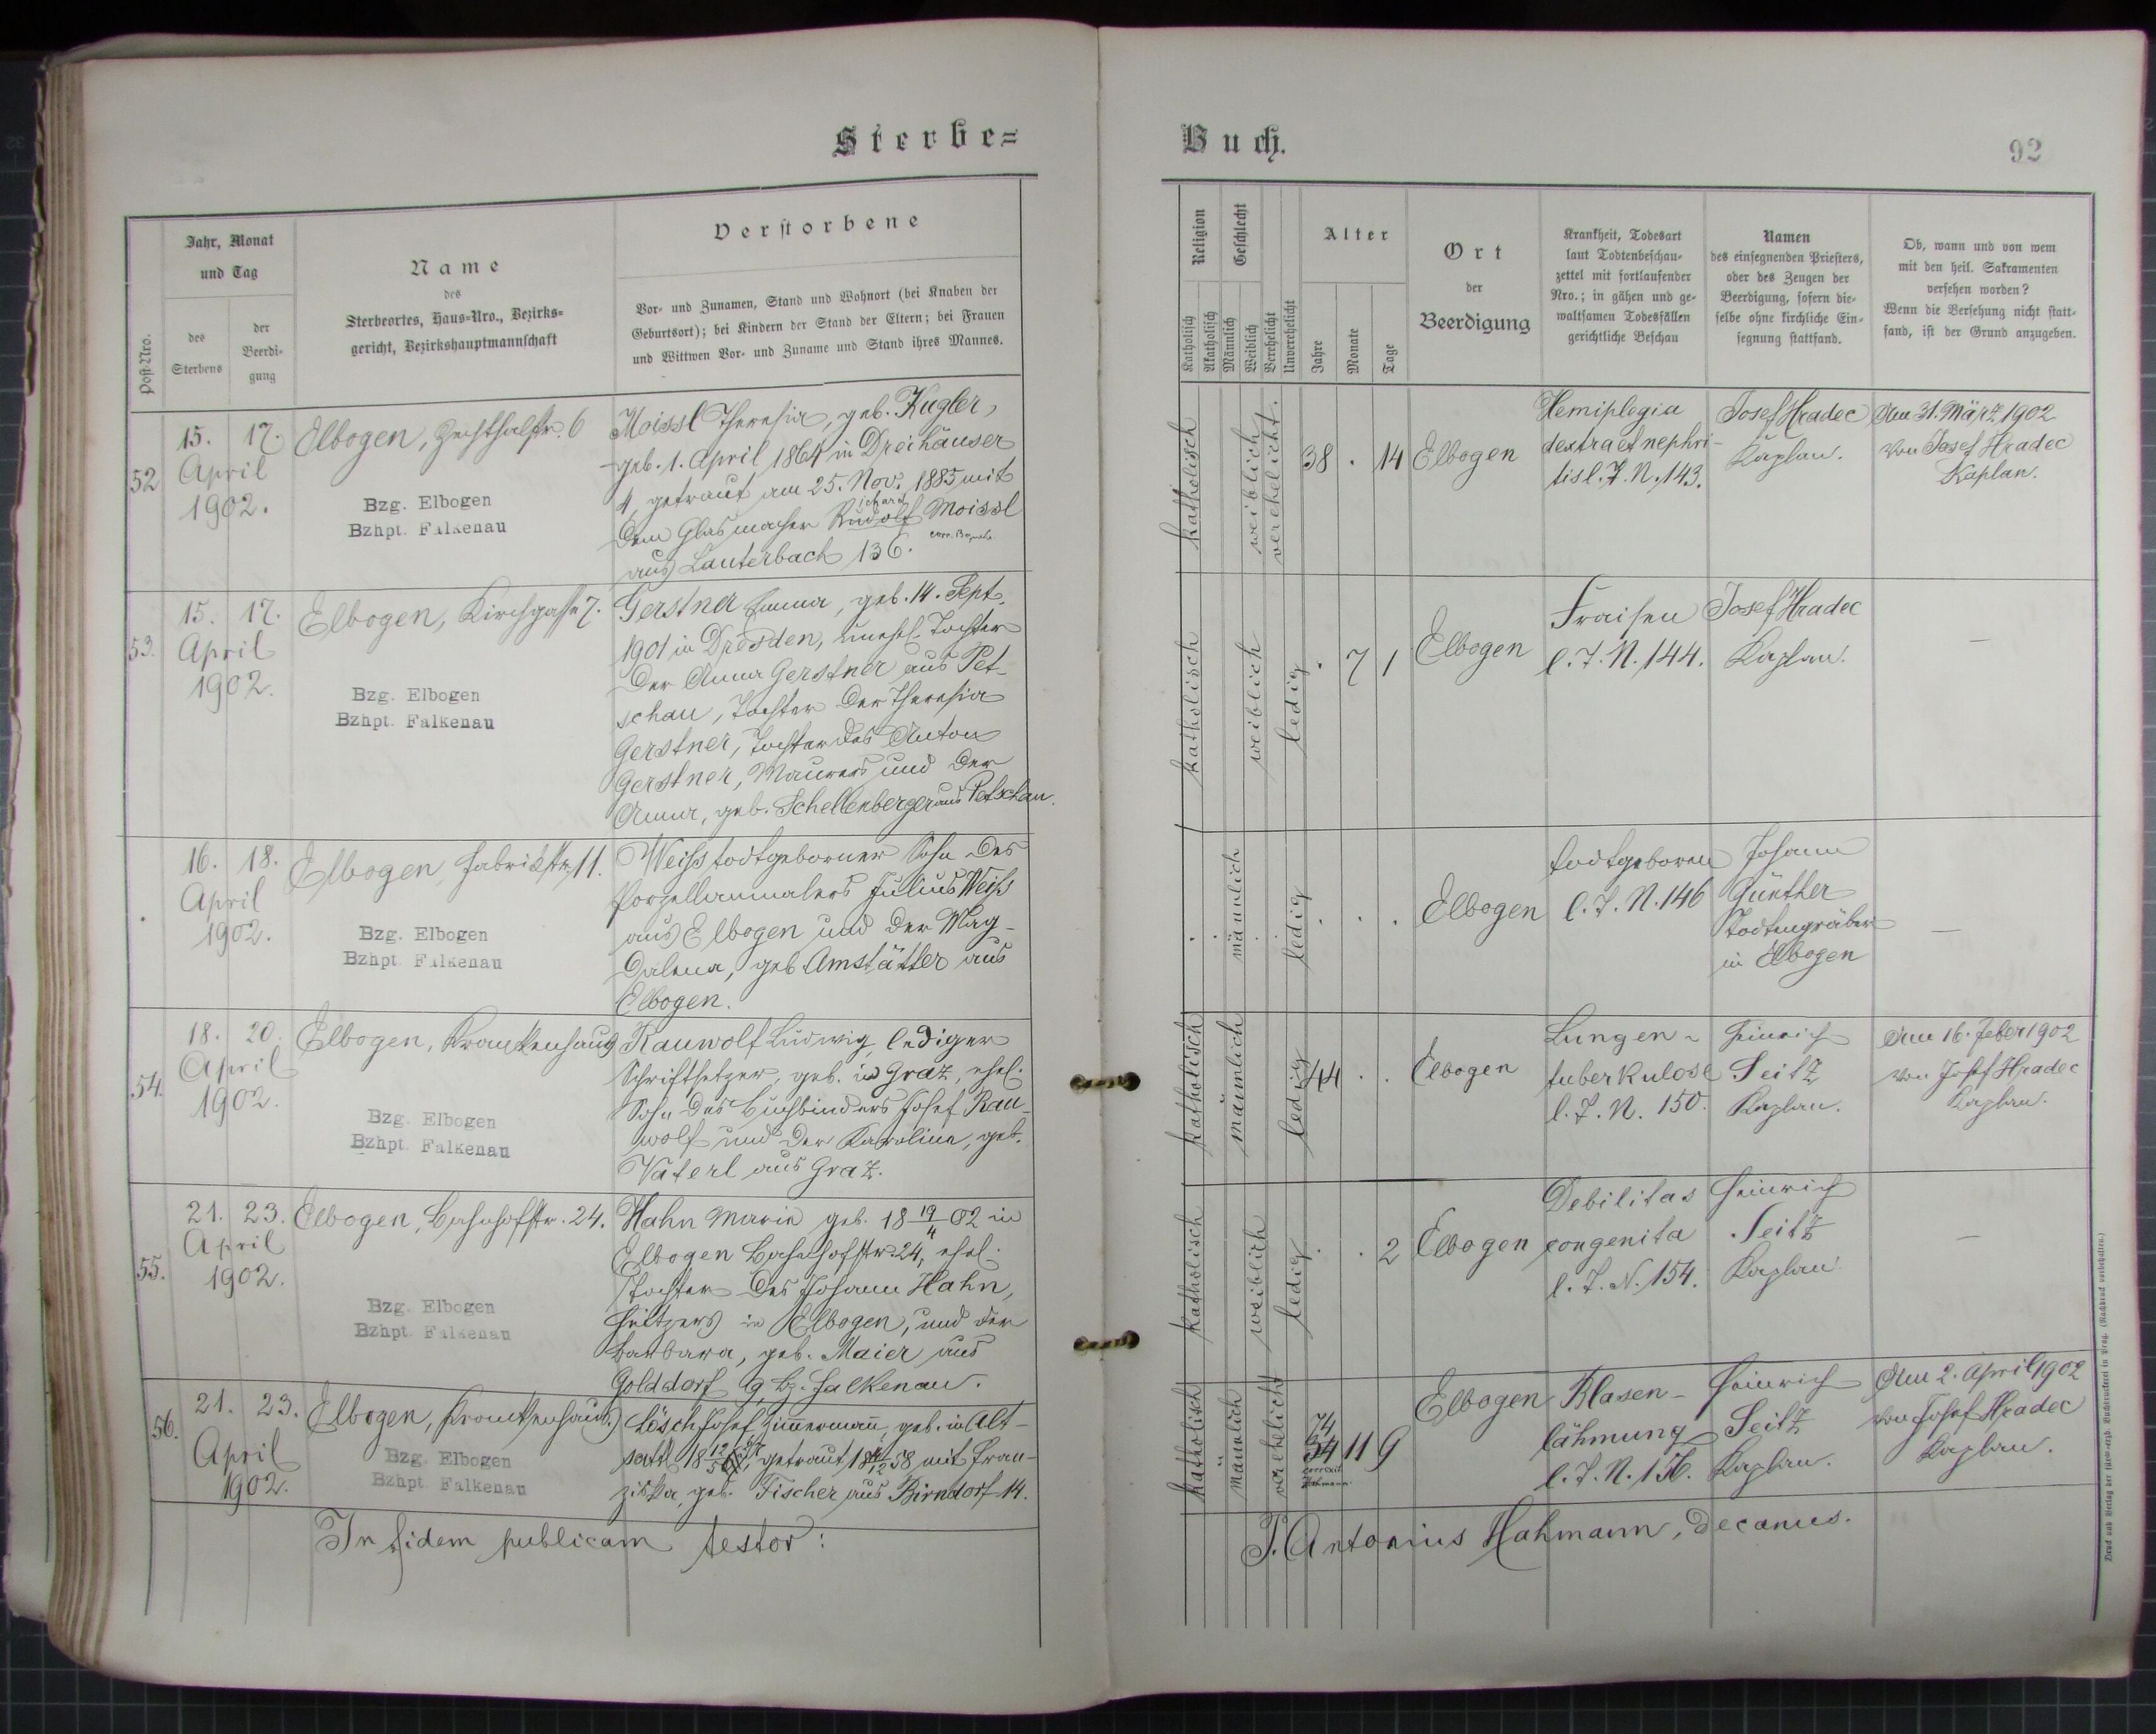 Sterbe=
Buch.
92
Post-Nro.
Jahr, Monat
und Tag
des
Sterbens
der
Beerdi-
gung
Name
des
Sterbeortes, Haus-Nro., Bezirks=
gericht, Bezirkshauptmannschaft
Verstorbene
Vor- und Zunamen, Stand und Wohnort (bei Knaben der
Geburtsort); bei Kindern der Stand der Eltern; bei Frauen
und Wittwen Vor- und Zuname und Stand ihres Mannes.
Religion
Katholisch
Akatholisch
Geschlecht
Männlich
Weiblich
Verehelicht
Unverehelicht
Alter
Jahre
Monate
Tage
Ort
der
Beerdigung
Krankheit, Todesart
laut Todtenbeschau-
zettel mit fortlaufender
Nro.; in gähen und ge-
waltsamen Todesfällen
gerichtliche Beschau
Namen
des einsegnenden Priesters,
oder des Zeugen der
Beerdigung, sofern die-
selbe ohne kirchliche Ein-
segnung stattfand.
Ob, wann und von wem
mit den heil. Sakramenten
versehen worden?
Wenn die Versehung nicht statt-
fand, ist der Grund anzugeben.
52
15. 17.
April
1902.
Elbogen, Zechthalstr. 6
Bzg. Elbogen
Bzhpt. Falkenau
Moissl Theresia, geb. Kugler,
geb. 1. April 1864 in Dreihäuser
4, getraut am 25. Nov. 1885 mit
ichard
dem Glasmacher Rudolf Moissl
aus Lauterbach 136.
katholisch
weiblich
verehelicht.
38 . 14
Elbogen
Hemiplegia
dextra et nephri-
tis l. T. N. 143.
Josef Hradec
Kaplan.
Am 31. März 1902
von Josef Hradec
Kaplan.
53.
15. 17.
April
1902.
Elbogen, Kirchgasse 7.
Bzg. Elbogen
Bzhpt. Falkenau
Gerstner Emma, geb. 14. Sept.
1901 in Dresden, unehel. Tochter
der Anna Gerstner aus Pet-
schau, Tochter der Theresia
Gerstner, Tochter des Anton
Gerstner, Maurers und der
Anna, geb. Schellenberger aus Petschau.
katholisch
weiblich
ledig
. 7 1
Elbogen
Fraisen
l. T. N. 144.
Josef Hradec
Kaplan.
—
16. 18.
April
1902.
Elbogen, Fabrikstr. 11.
Bzg. Elbogen
Bzhpt. Falkenau
Weiss todtgeborner Sohn des
Porzellanmalers Julius Weiss
aus Elbogen und der Mag-
dalena, geb. Amstätter aus
Elbogen.
männlich
ledig
. . .
Elbogen
todtgeboren
l. T. N. 146
Johann
Günther
Todtengräber
in Elbogen
—
54.
18. 20.
April
1902.
Elbogen, Krankenhaus
Bzg. Elbogen
Bzhpt. Falkenau
Rauwolf Ludwig, lediger
Schriftsetzer, geb. in Graz, ehel.
Sohn des Buchbinders Josef Rau-
wolf und der Karoline, geb.
Vaterl aus Graz.
katholisch
männlich
ledig
44 . .
Elbogen
Lungen-
tuberkulose
l. T. N. 150.
Heinrich
Seitz
Kaplan.
Am 16. Feber 1902
von Josef Hradec
Kaplan.
55.
21. 23.
April
1902.
Elbogen, Bahnhofstr. 24.
Bzg. Elbogen
Bzhpt. Falkenau
Hahn Marie geb. 18 19/4 02 in
Elbogen Bahnhofstr. 24, ehel.
Tochter des Johann Hahn,
in Elbogen, und der
Barbara, geb. Maier aus
Golddorf 9 Bz. Falkenau.
katholisch
weiblich
ledig
. . 2
Elbogen
Debilitas
congenita
l. T. N. 154.
Heinrich
Seitz
Kaplan.
—
56.
21. 23.
April
1902.
Elbogen, Krankenhaus.
Bzg. Elbogen
Bzhpt. Falkenau
Lösch Josef, Zimmermann, geb. in Alt-
sattl 18 12/5 27, getraut 18 58 mit Fran-
ziska, geb. Fischer aus Birndorf 14.
katholisch
männlich
verehelicht
74
34 11 9
correxit
Hahmann
Elbogen
Blasen-
lähmung
l. T. N. 156.
Heinrich
Seitz
Kaplan.
Am 2. April 1902
von Josef Hradec
Kaplan.
In fidem publicam testor:
P. Antonius Hahmann, decanus.
Druck und Verlag der fürst-erzb. Buchdruckerei in Prag. (Nachdruck vorbehalten.)